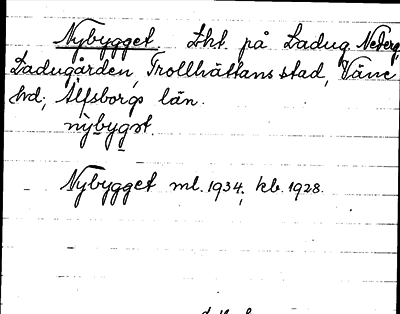 Nybygget. Lht. på Ladug. Neterg.
Ladugården, Trollhättans stad, Väne
hd; Älfsborgs län.
nybygət.
Nybygget ml. 1934; kb. 1928.